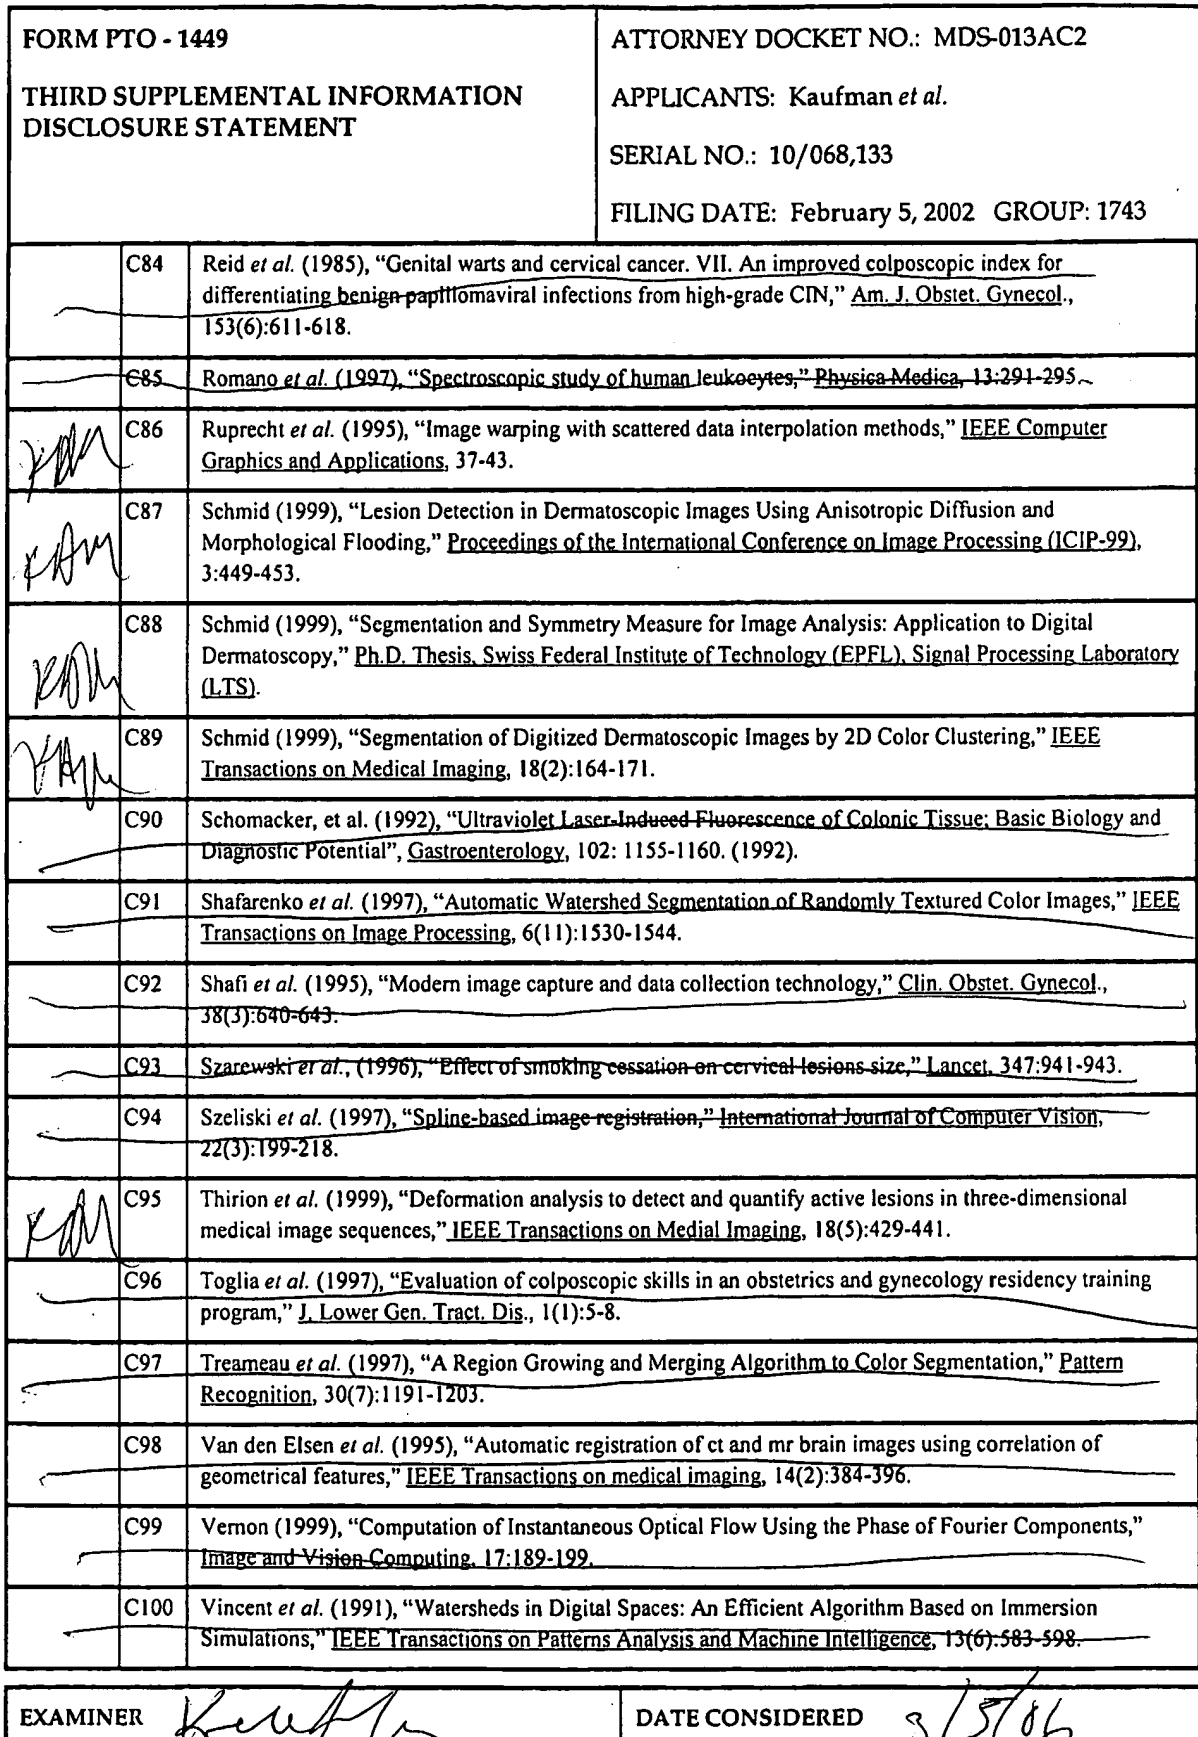 FORM PTO - 1449
THIRD SUPPLEMENTAL INFORMATION
DISCLOSURE STATEMENT
ATTORNEY DOCKET NO.: MDS-013AC2
APPLICANTS: Kaufman et al.
SERIAL NO.: 10/068,133
FILING DATE: February 5, 2002 GROUP: 1743
C84 Reid et al. (1985), “Genital warts and cervical cancer. VII. An improved colposcopic index for
differentiating benign papillomaviral infections from high-grade CIN,” Am. J. Obstet. Gynecol.,
153(6):611-618.
C85 Romano et al. (1997), “Spectroscopic study of human leukocytes,” Physica Medica, 13:291-295.
C86 Ruprecht et al. (1995), “Image warping with scattered data interpolation methods,” IEEE Computer
Graphics and Applications, 37-43.
C87 Schmid (1999), “Lesion Detection in Dermatoscopic Images Using Anisotropic Diffusion and
Morphological Flooding,” Proceedings of the International Conference on Image Processing (ICIP-99),
3:449-453.
C88 Schmid (1999), “Segmentation and Symmetry Measure for Image Analysis: Application to Digital
Dermatoscopy,” Ph.D. Thesis, Swiss Federal Institute of Technology (EPFL), Signal Processing Laboratory
(LTS).
C89 Schmid (1999), “Segmentation of Digitized Dermatoscopic Images by 2D Color Clustering,” IEEE
Transactions on Medical Imaging, 18(2):164-171.
C90 Schomacker, et al. (1992), “Ultraviolet Laser-Induced Fluorescence of Colonic Tissue; Basic Biology and
Diagnostic Potential”, Gastroenterology, 102: 1155-1160. (1992).
C91 Shafarenko et al. (1997), “Automatic Watershed Segmentation of Randomly Textured Color Images,” IEEE
Transactions on Image Processing, 6(11):1530-1544.
C92 Shafi et al. (1995), “Modern image capture and data collection technology,” Clin. Obstet. Gynecol.,
38(3):640-643.
C93 Szarewski et al., (1996), “Effect of smoking cessation on cervical lesions size,” Lancet, 347:941-943.
C94 Szeliski et al. (1997), “Spline-based image registration,” International Journal of Computer Vision,
22(3):199-218.
C95 Thirion et al. (1999), “Deformation analysis to detect and quantify active lesions in three-dimensional
medical image sequences,” IEEE Transactions on Medial Imaging, 18(5):429-441.
C96 Toglia et al. (1997), “Evaluation of colposcopic skills in an obstetrics and gynecology residency training
program,” J. Lower Gen. Tract. Dis., 1(1):5-8.
C97 Treameau et al. (1997), “A Region Growing and Merging Algorithm to Color Segmentation,” Pattern
Recognition, 30(7):1191-1203.
C98 Van den Elsen et al. (1995), “Automatic registration of ct and mr brain images using correlation of
geometrical features,” IEEE Transactions on medical imaging, 14(2):384-396.
C99 Vernon (1999), “Computation of Instantaneous Optical Flow Using the Phase of Fourier Components,”
Image and Vision Computing, 17:189-199.
C100 Vincent et al. (1991), “Watersheds in Digital Spaces: An Efficient Algorithm Based on Immersion
Simulations,” IEEE Transactions on Patterns Analysis and Machine Intelligence, 13(6):583-598.
EXAMINER
DATE CONSIDERED